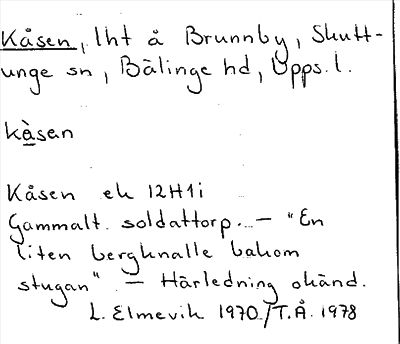 Kåsen, lht å Brunnby, Skutt-
unge sn, Bälinge hd, Upps. l.
kàsen
Kåsen ek 12H1i
Gammalt soldattorp. – "En
liten bergknalle bakom
stugan" – Härledning okänd.
L. Elmevik 1970/T.Å. 1978